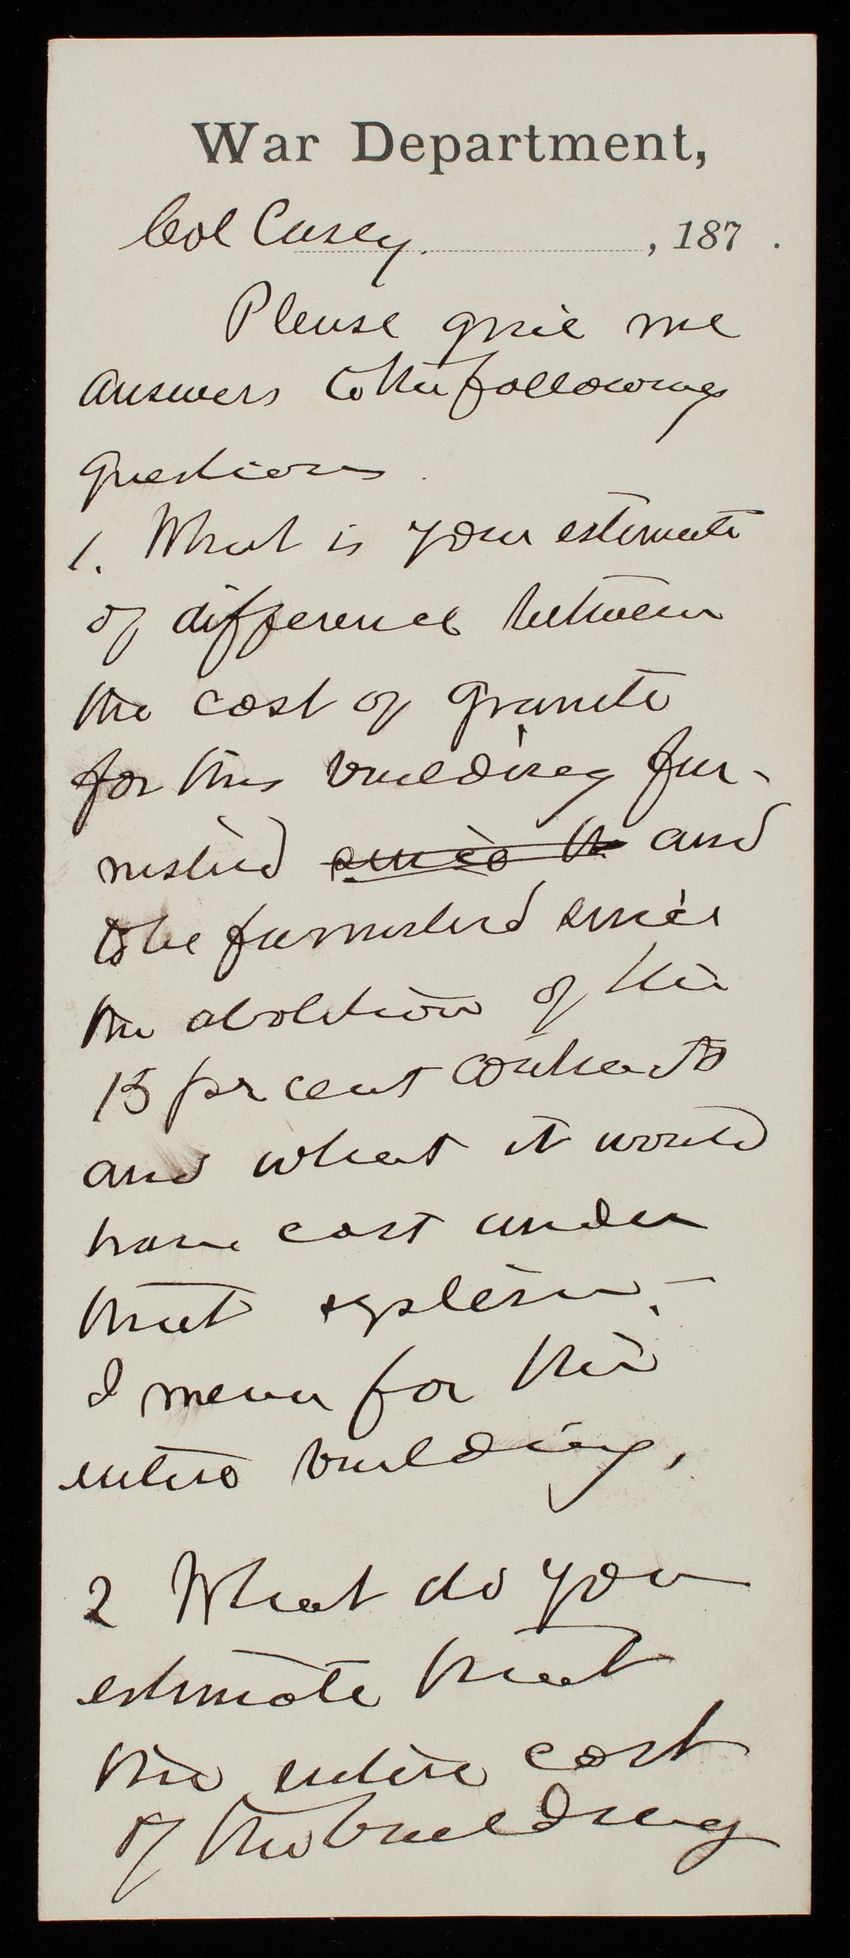 War Department,
Col Casey. , 187 .
Please give me
answers to the following
questions.
1. What is your estimate
of difference between
the cost of granite
for this building fur-
nished since th and
to be furnished since
the abolition of the
15 per cent contracts
and what it would
have cost under
that system. -
I mean for the
entire building,
2 What do you
estimate that
the entire cost
of the building